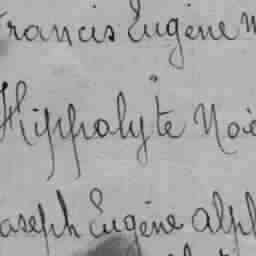 Francis Eugène
Hippolyte Noë
Joseph Eugène Alph